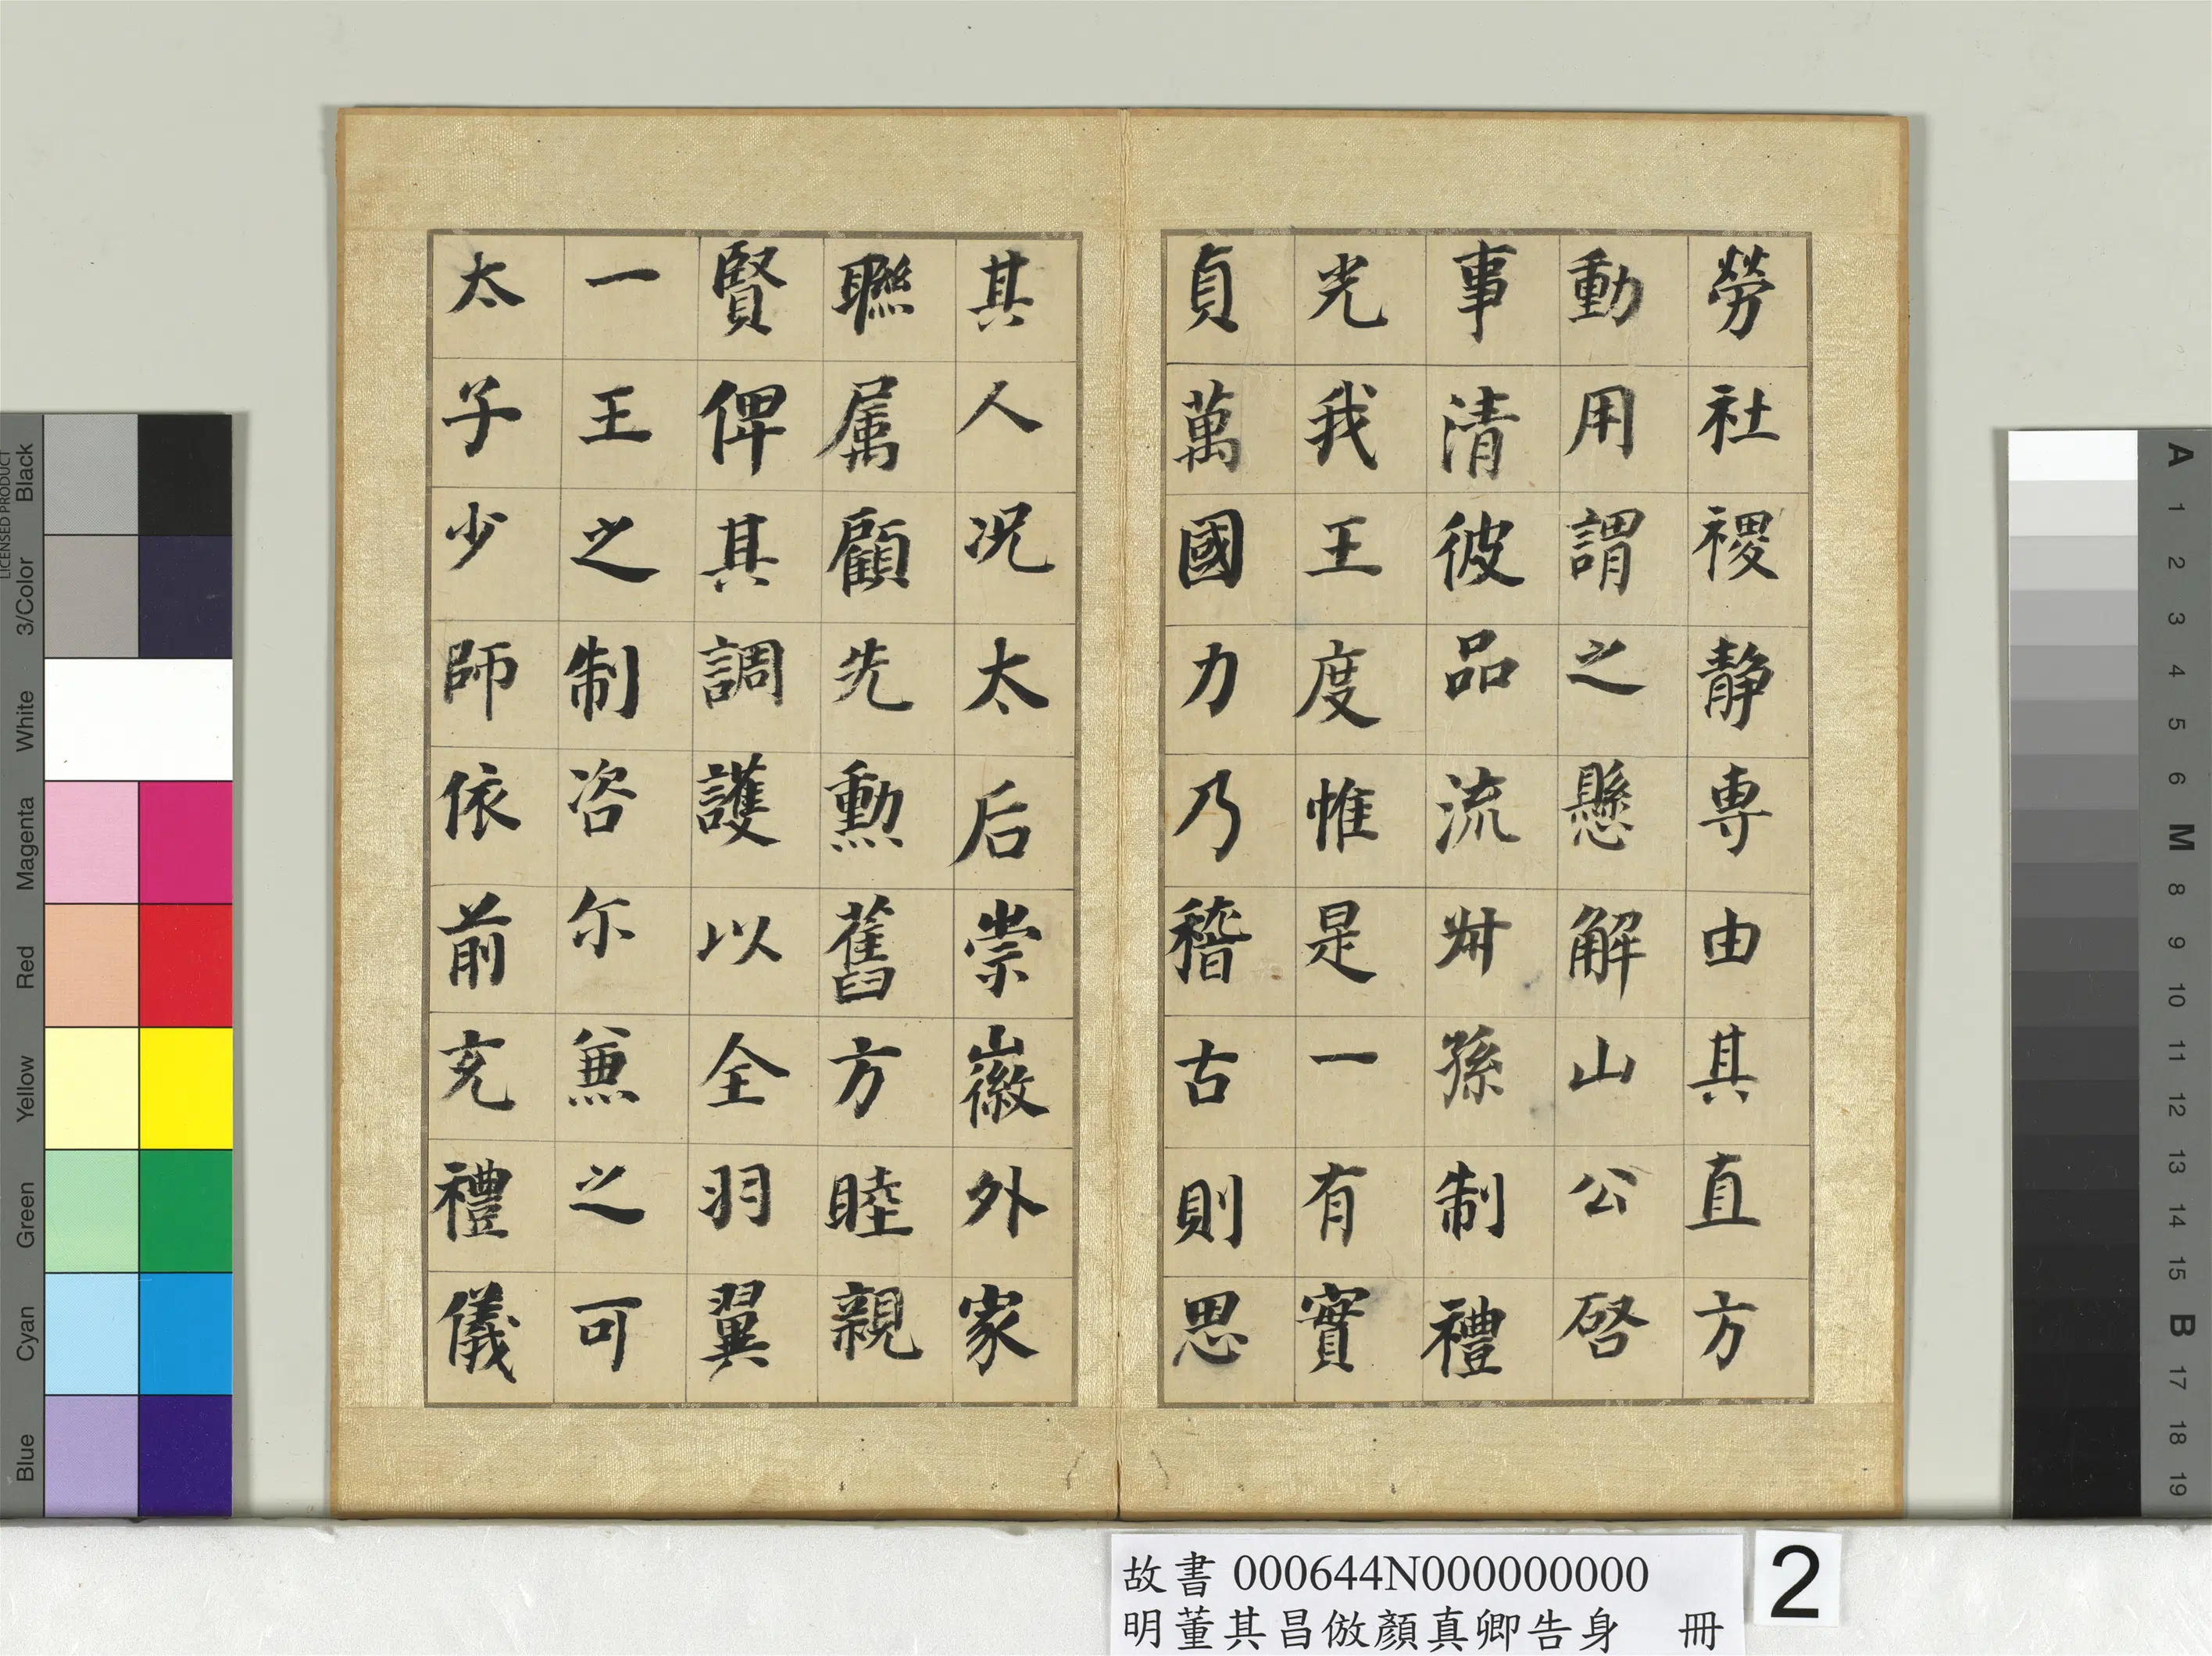 勞社稷静專由其直方
動用謂之懸解山公啓
事清彼品流叔孫制禮
光我王度惟是一有實
貞萬國力乃稽古則思
其人況太后崇徽外家
聯属顧先勲舊方睦親
賢俾其調護以全羽翼
一王之制咨尓兼之可
太子少師依前充禮儀
故書 000644N000000000
明董其昌倣顏真卿告身 冊
2
LICENSED PRODUCT
Black
3/Color
White
Magenta
Red
Yellow
Green
Cyan
Blue
A
1
2
3
4
5
6
M
8
9
10
11
12
13
14
15
B
17
18
19